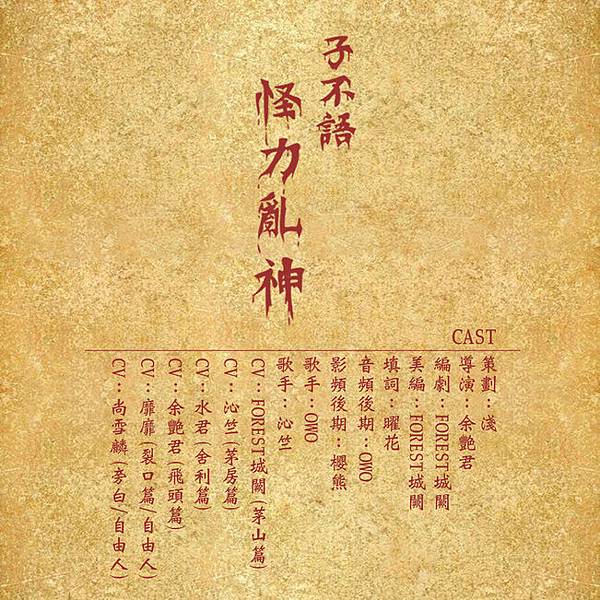 子不語
怪力亂神
CAST
策劃：淺
導演：余艷君
編劇：FOREST城闕
美編：FOREST城闕
填詞：曜花
音頻後期：OWO
影頻後期：櫻熊
歌手：OWO
歌手：沁竺
CV：FOREST城闕(茅山篇)
CV：沁竺(茅房篇)
CV：水君(舍利篇)
CV：余艷君(飛頭篇)
CV：靡靡(裂口篇/自由人)
CV：尚雪麟(旁白/自由人)